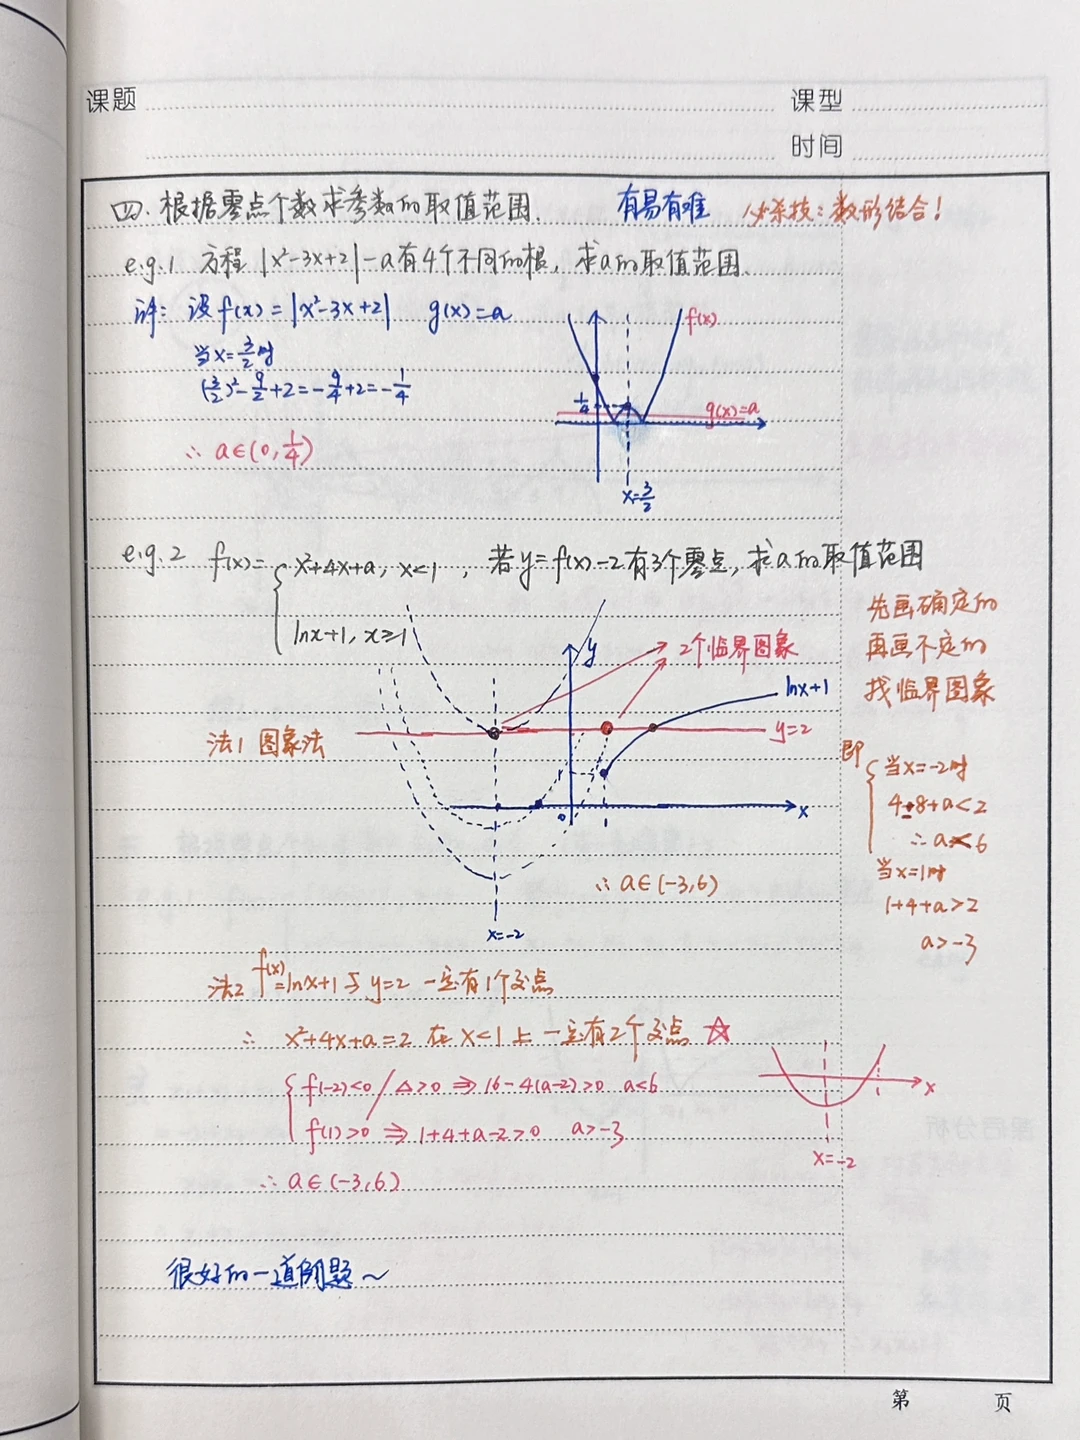 课题
课型
时间
四. 根据零点个数求参数的取值范围. 有易有难 必杀技：数形结合！
e.g.1 方程 |x²-3x+2|-a有4个不同的根，求a的取值范围.
详：设f(x)=|x²-3x+2| g(x)=a
当x=3/2时
(3/2)²-9/2+2=-9/4+2=-1/4
∴ a∈(0,1/4)
f(x)
1/4
g(x)=a
x=3/2
e.g.2 f(x)={x²+4x+a, x<1 , 若y=f(x)-2有3个零点，求a的取值范围
lnx+1, x≥1
先画确定的
再画不定的
找临界图象
y
2个临界图象
lnx+1
法1 图象法
y=2
x
0
1
x=-2
∴ a∈(-3,6)
即{当x=-2时
4-8+a<2
∴ a<6
当x=1时
1+4+a>2
a>-3
法2 f(x)=lnx+1与y=2 一定有1个交点
∴ x²+4x+a=2 在x<1上一定有2个交点 ☆
{f(-2)<0 / △>0 ⇒ 16-4(a-2)>0 a<6
f(1)>0 ⇒ 1+4+a-2>0 a>-3
∴ a∈(-3,6)
1
x
x=-2
很好的一道问题～
第 页